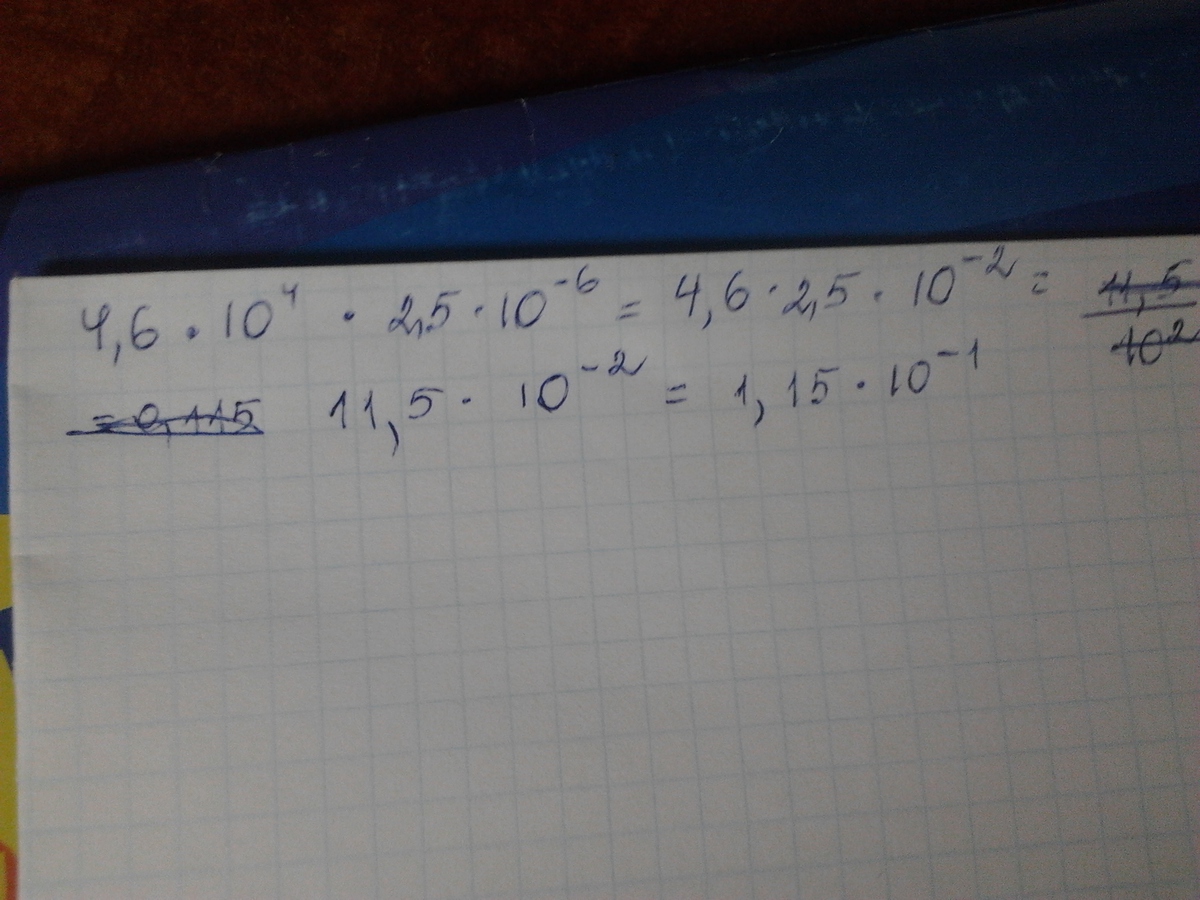 4,6 · 10⁴ · 2,5 · 10⁻⁶ = 4,6 · 2,5 · 10⁻² = 11,5/10²
= 0,115 11,5 · 10⁻² = 1,15 · 10⁻¹